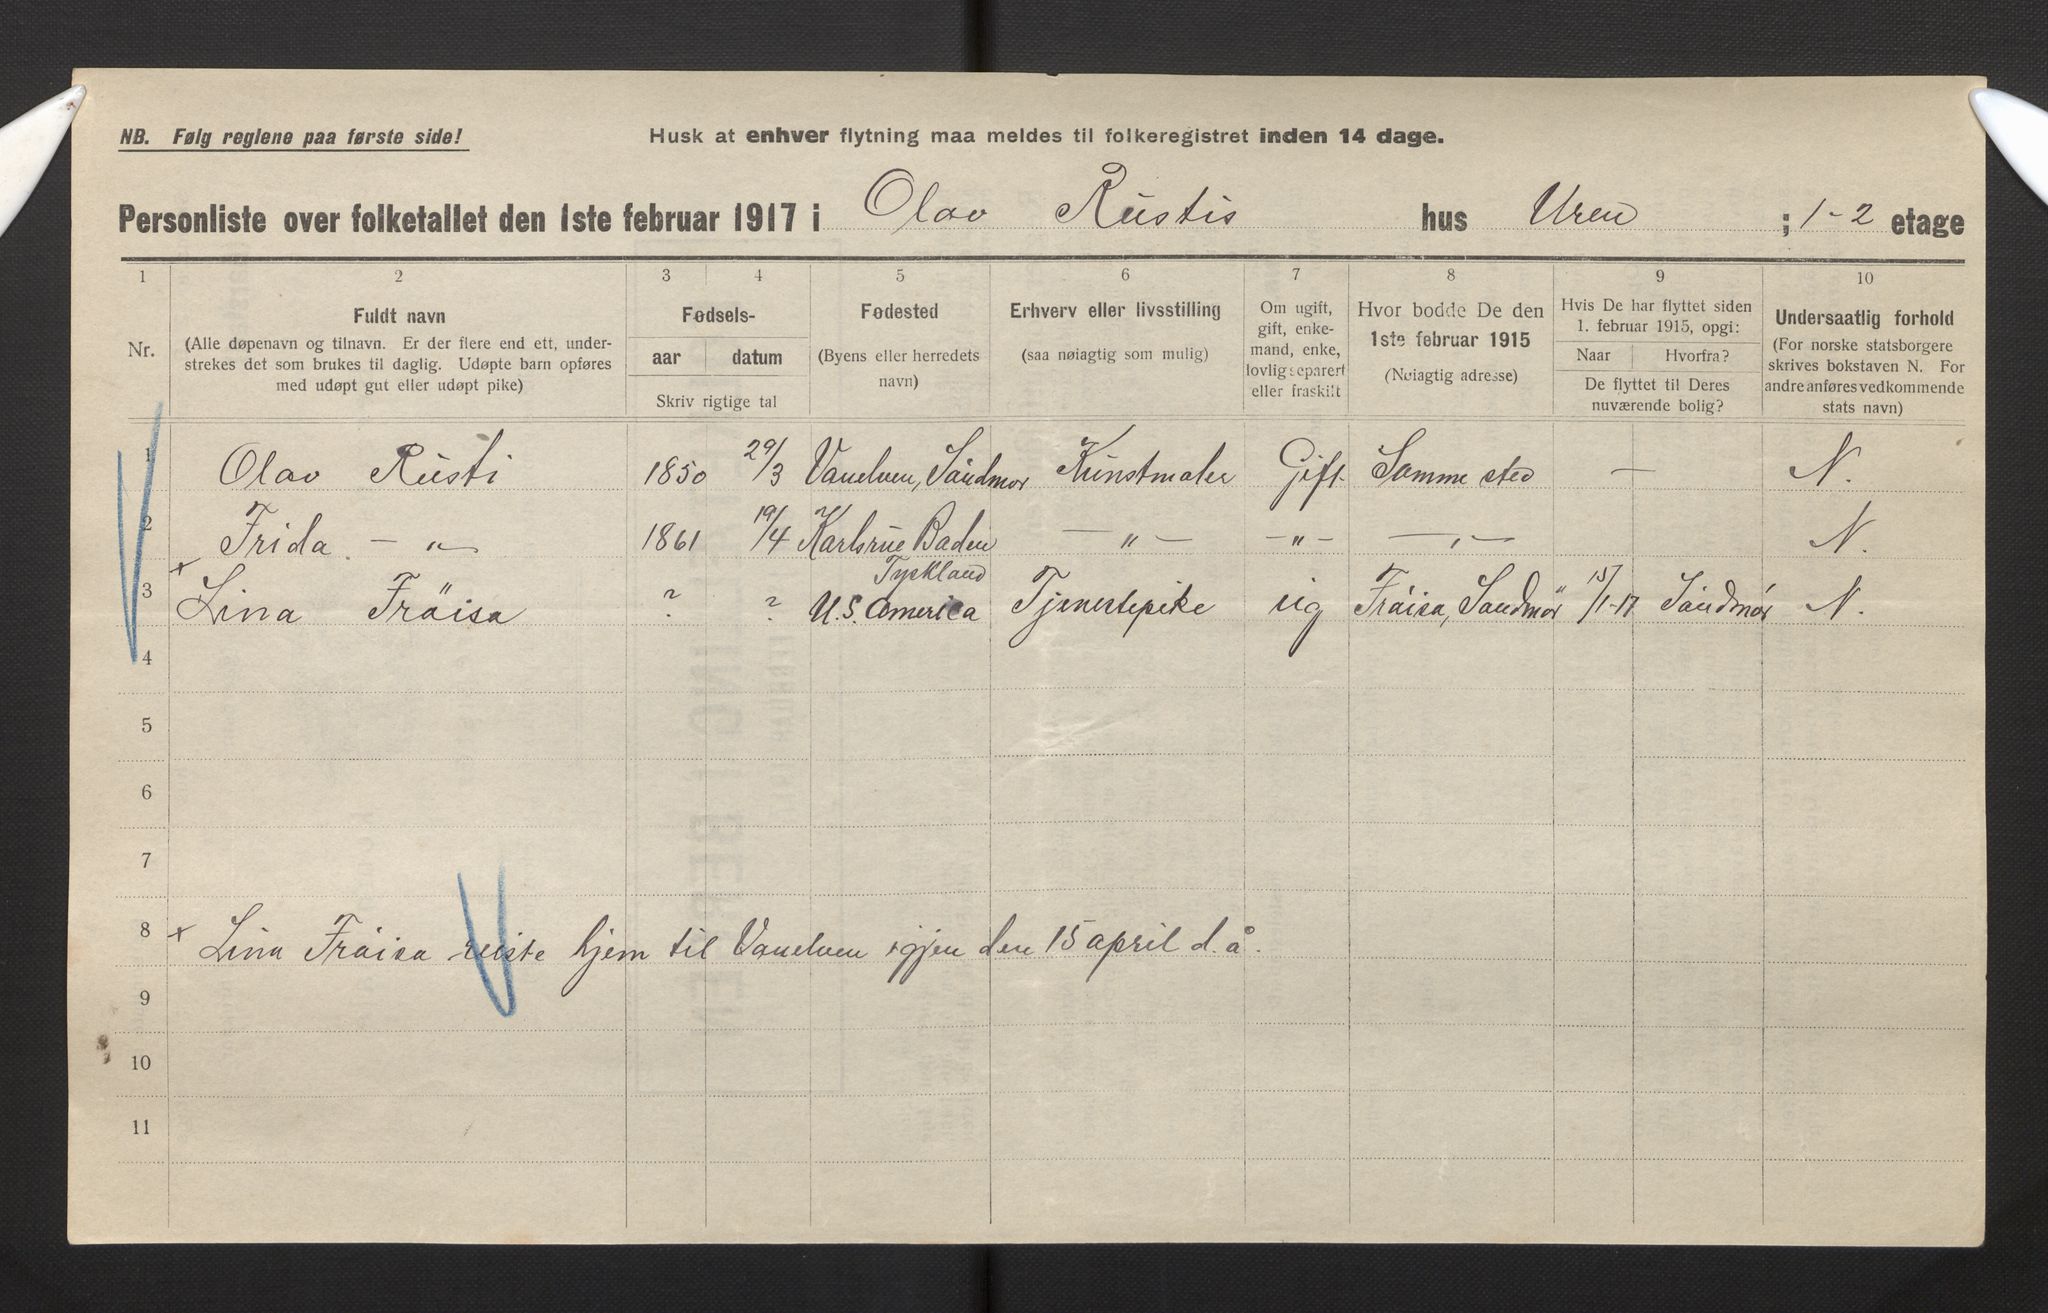 NB. Følg reglene paa første side!
Husk at enhver flytning maa meldes til folkeregistret inden 14 dage.
Personliste over folketallet den 1ste februar 1917 i Olav Rusti's hus Uren ; 1-2 etage
1 2 3 4 5 6 7 8 9 10
Nr.
Fuldt navn
(Alle døpenavn og tilnavn. Er der flere end ett, under-
strekes det som brukes til daglig. Udøpte barn opføres
med udøpt gut eller udøpt pike)
Fødsels-
aar datum
Skriv rigtige tal
Fødested
(Byens eller herredets
navn)
Erhverv eller livsstilling
(saa nøiagtig som mulig)
Om ugift,
gift, enke-
mand, enke,
lovlig separert
eller fraskilt
Hvor bodde De den
1ste februar 1915
(Nøiagtig adresse)
Hvis De har flyttet siden
1. februar 1915, opgi:
Naar Hvorfra?
De flyttet til Deres
nuværende bolig?
Undersaatlig forhold
(For norske statsborgere
skrives bokstaven N. For
andre anføres vedkommende
stats navn)
1 Olav Rusti 1850 29/3 Vanelven, Söndmør Kunstmaler Gift. Samme sted — N.
2 Frida — " — 1861 19/4 Karlsrue Baden — " — — " — — " — N.
Tyskland
3 x Lina Fröisa ? ? U.S. America Tjenestepike ug Fröisa, Søndmör 15/1-17 Søndmør N.
4
5
6
7
8 x Lina Fröisa reiste hjem til Vanelven igjen den 15 april d. å.
9
10
11